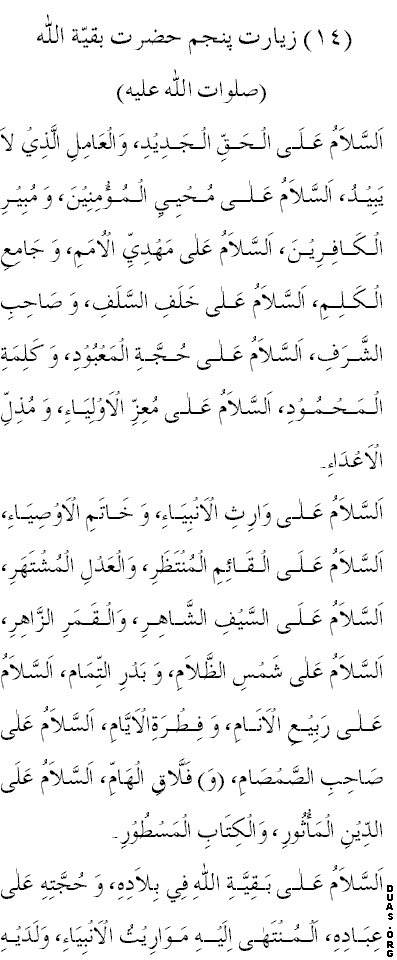 (١٤) زیارت پنجم حضرت بقیّة اللّٰه
(صلوات اللّٰه علیه)
اَلسَّلاَمُ عَلَی الْحَقِّ الْجَدِیْدِ، وَالْعَامِلِ الَّذِيْ لاَ
یَبِیْدُ، اَلسَّلاَمُ عَلٰی مُحْیِي الْمُؤْمِنِیْنَ، وَ مُبِیْرِ
الْکَافِرِیْنَ، اَلسَّلاَمُ عَلٰی مَهْدِيِّ الْاُمَمِ، وَ جَامِعِ
الْکَلِمِ، اَلسَّلاَمُ عَلٰی خَلَفِ السَّلَفِ، وَ صَاحِبِ
الشَّرَفِ، اَلسَّلاَمُ عَلٰی حُجَّةِ الْمَعْبُوْدِ، وَ کَلِمَةِ
الْمَحْمُوْدِ، اَلسَّلاَمُ عَلٰی مُعِزِّ الْاَوْلِیَاءِ، وَ مُذِلِّ
الْاَعْدَاءِ۔
اَلسَّلاَمُ عَلٰی وَارِثِ الْاَنْبِیَاءِ، وَ خَاتَمِ الْاَوْصِیَاءِ،
اَلسَّلاَمُ عَلَی الْقَائِمِ الْمُنْتَظَرِ، وَالْعَدْلِ الْمُشْتَهَرِ،
اَلسَّلاَمُ عَلَی السَّیْفِ الشَّاهِرِ، وَالْقَمَرِ الزَّاهِرِ،
اَلسَّلاَمُ عَلٰی شَمْسِ الظَّلاَمِ، وَ بَدْرِ التِّمَامِ، اَلسَّلاَمُ
عَلٰی رَبِیْعِ الْاَنَامِ، وَ فِطْرَةِ الْاَیَّامِ، اَلسَّلاَمُ عَلٰی
صَاحِبِ الصَّمْصَامِ، (وَ) فَلَّاقِ الْهَامِّ، اَلسَّلاَمُ عَلَی
الدِّیْنِ الْمَأْثُوْرِ، وَالْکِتَابِ الْمَسْطُوْرِ۔
اَلسَّلاَمُ عَلٰی بَقِیَّةِ اللّٰهِ فِي بِلاَدِهِ، وَ حُجَّتِهِ عَلٰی
عِبَادِهِ، اَلْمُنْتَهٰی اِلَیْهِ مَوَارِیْثُ الْاَنْبِیَاءِ، وَلَدَیْهِ
DUAS.ORG